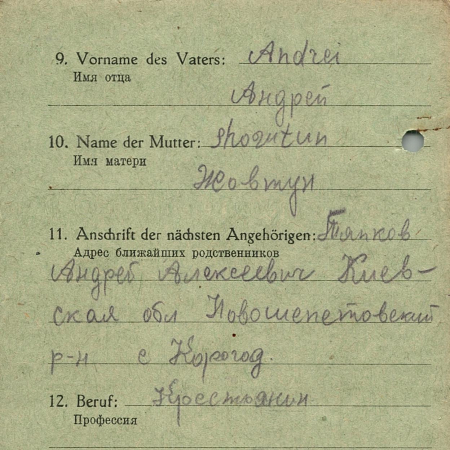 9. Vorname des Vaters: Andrei
Имя отца
Андрей
10. Name der Mutter: Shovtun
Имя матери
Жовтун
11. Anschrift der nächsten Angehörigen: Тапков
Адрес ближайших родственников
Андрей Алексеевич Киев-
ская обл Новошепетовский
р-н с Корогод.
12. Beruf: Крестьянин
Профессия